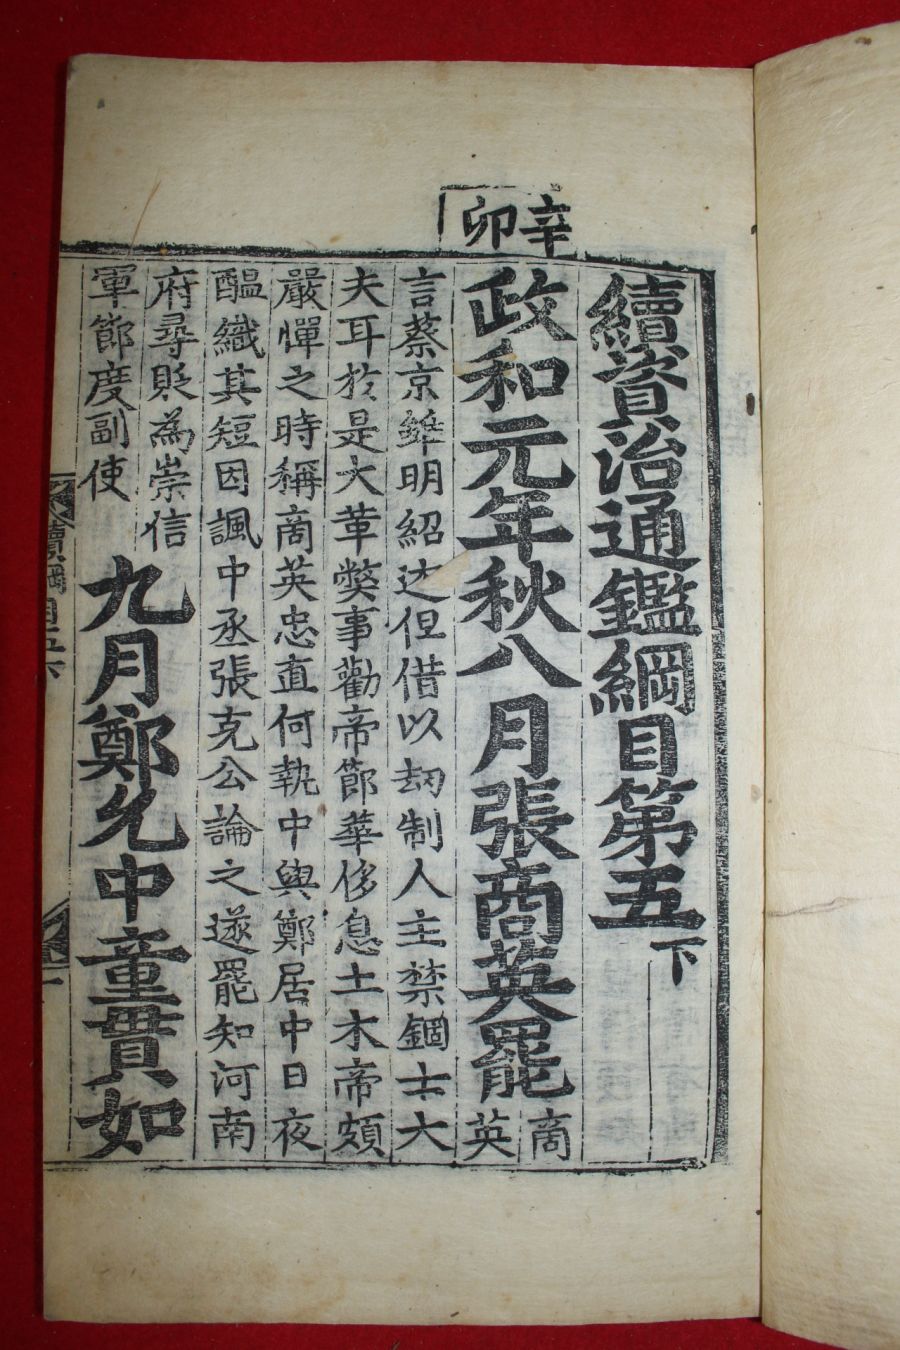 辛卯
續資治通鑑綱目第五下
政和元年秋八月張商英罷商英
言蔡京雖明紹述但借以劫制人主禁錮士大
夫耳於是大革弊事勸帝節華侈息土木帝頗
嚴憚之時稱商英忠直何執中與鄭居中日夜
醞織其短因諷中丞張克公論之遂罷知河南
府尋貶為崇信
軍節度副使
九月鄭允中童貫如
續綱目五下